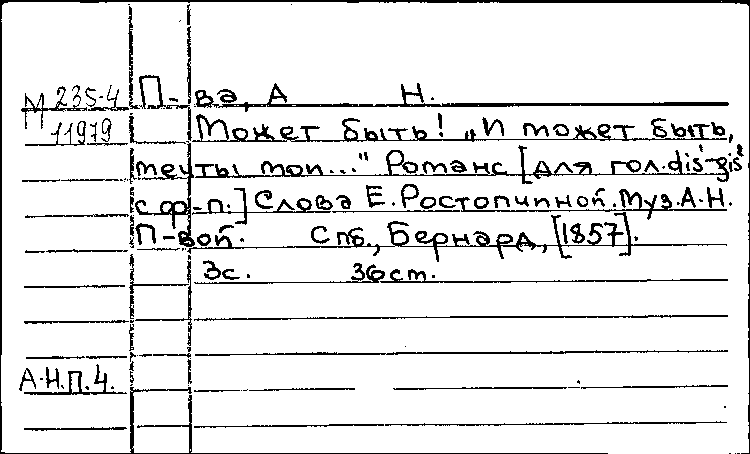 М 235-4 П-ва, А Н.
11979 Может быть! „И может быть,
мечты мои..." Романс [для гол. dis¹-gis²
с ф-п.] Слова Е. Ростопчиной. Муз. А. Н.
П-вой. Спб., Бернард, [1857].
3с. 36 cm.
А.Н.П.4.